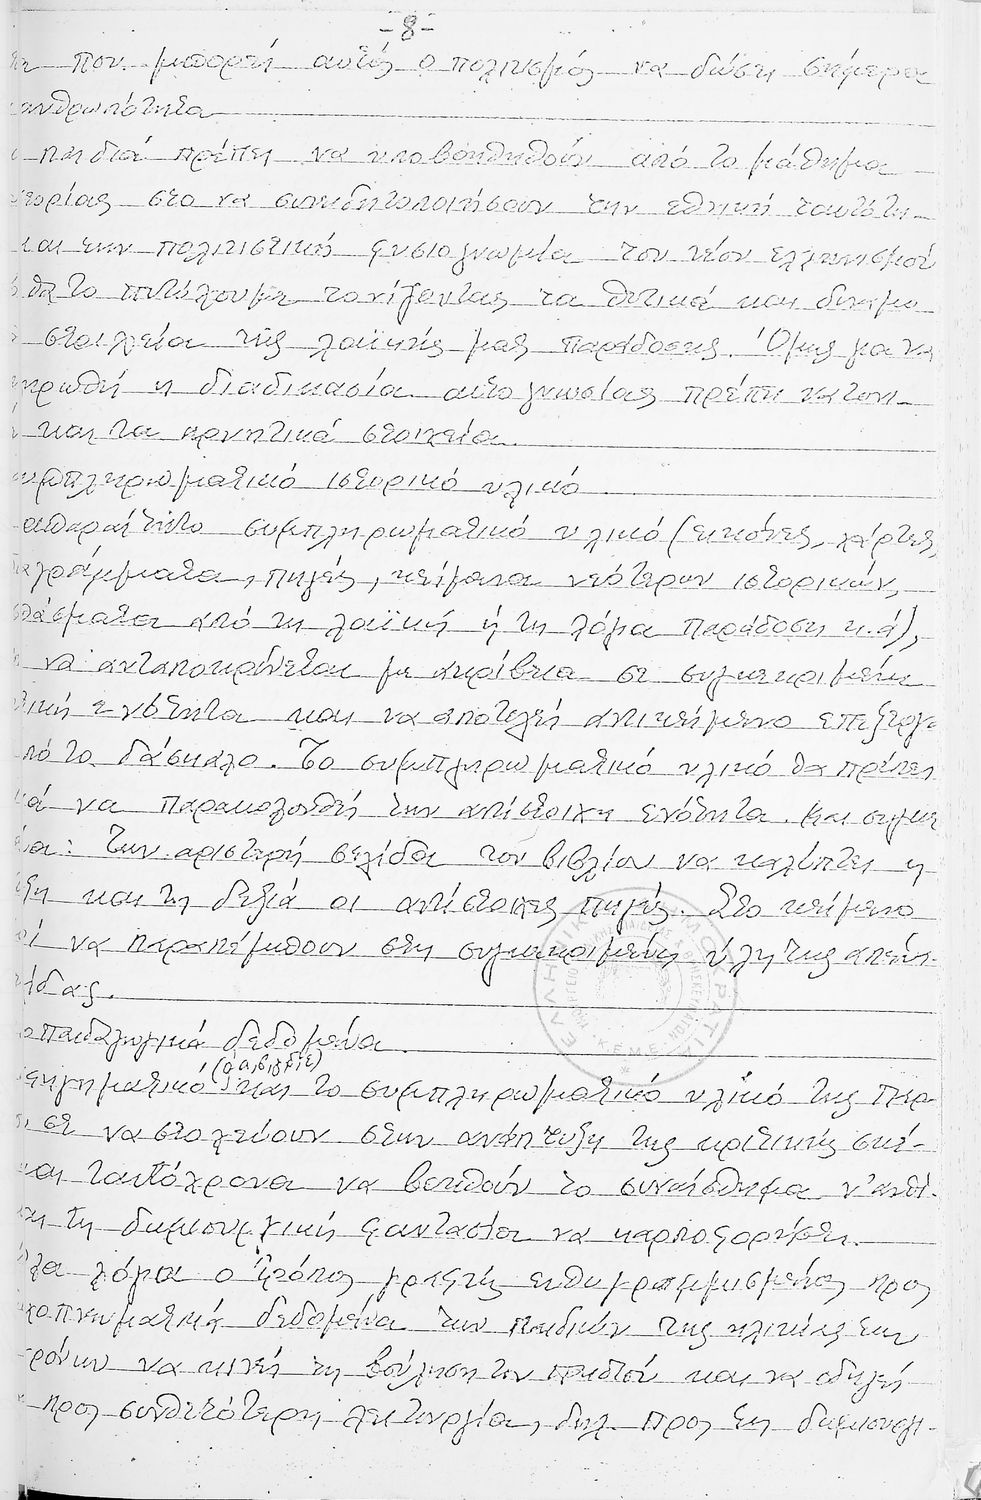 -8-
που μπορεί αυτός ο πολιτισμός να δώσει σήμερα
ανθρωπότητα
παιδιά πρέπει να υποβοηθηθούν από το μάθημα
τορίας στο να συνειδητοποιήσουν την εθνική ταυτότη-
και την πολιτιστική φυσιογνωμία του νέου ελληνισμού
θα το πετύχουμε τονίζοντας τα θετικά και δυναμι
στοιχεία της λαϊκής μας παράδοσης. Όμως για να
ηρωθή η διαδικασία αυτογνωσίας πρέπει να τονι-
και τα αρνητικά στοιχεία.
συμπληρωματικό ιστορικό υλικό
απαραίτητο συμπληρωματικό υλικό (εικόνες, χάρτες,
γράμματα, πηγές, κείμενα νεότερων ιστορικών,
σπάσματα από τη λαϊκή ή τη λόγια παράδοση κ.ά),
να ανταποκρίνεται με ακρίβεια σε συγκεκριμένη
τική ενότητα και να αποτελή αντικείμενο επεξεργα
πό το δάσκαλο. Το συμπληρωματικό υλικό θα πρέπει
κά να παρακολουθή την αντίστοιχη ενότητα. Και συγκε
να: Την αριστερή σελίδα του βιβλίου να καλύπτει η
ξη και τη δεξιά οι αντίστοιχες πηγές. Στο κείμενο
να παραπέμπουν στη συγκεκριμένη ύλη της απέν-
ίδας.
παιδαγωγικά δεδομένα
(α, β, γ, δ, ε)
ηγηματικό και το συμπληρωματικό υλικό της περ-
να στοχεύουν στην ανάπτυξη της κριτικής σκέ-
και ταυτόχρονα να βοηθούν το συναίσθημα ν' ανθί-
και τη δημιουργική φαντασία να καρποφορήσει.
λόγια ο τρόπος γραφής ευθυγραμμισμένος προς
χοπνευματικά δεδομένα των παιδιών της ηλικίας των
ρόνων να κινεί τη βούληση του παιδιού και να οδηγεί
προς συνθετότερη λειτουργία, δηλ. προς τη δημιουργι-
ΕΛΛΗΝΙΚΗ ΔΗΜΟΚΡΑΤΙΑ
Κ.Ε.Μ.Ε.